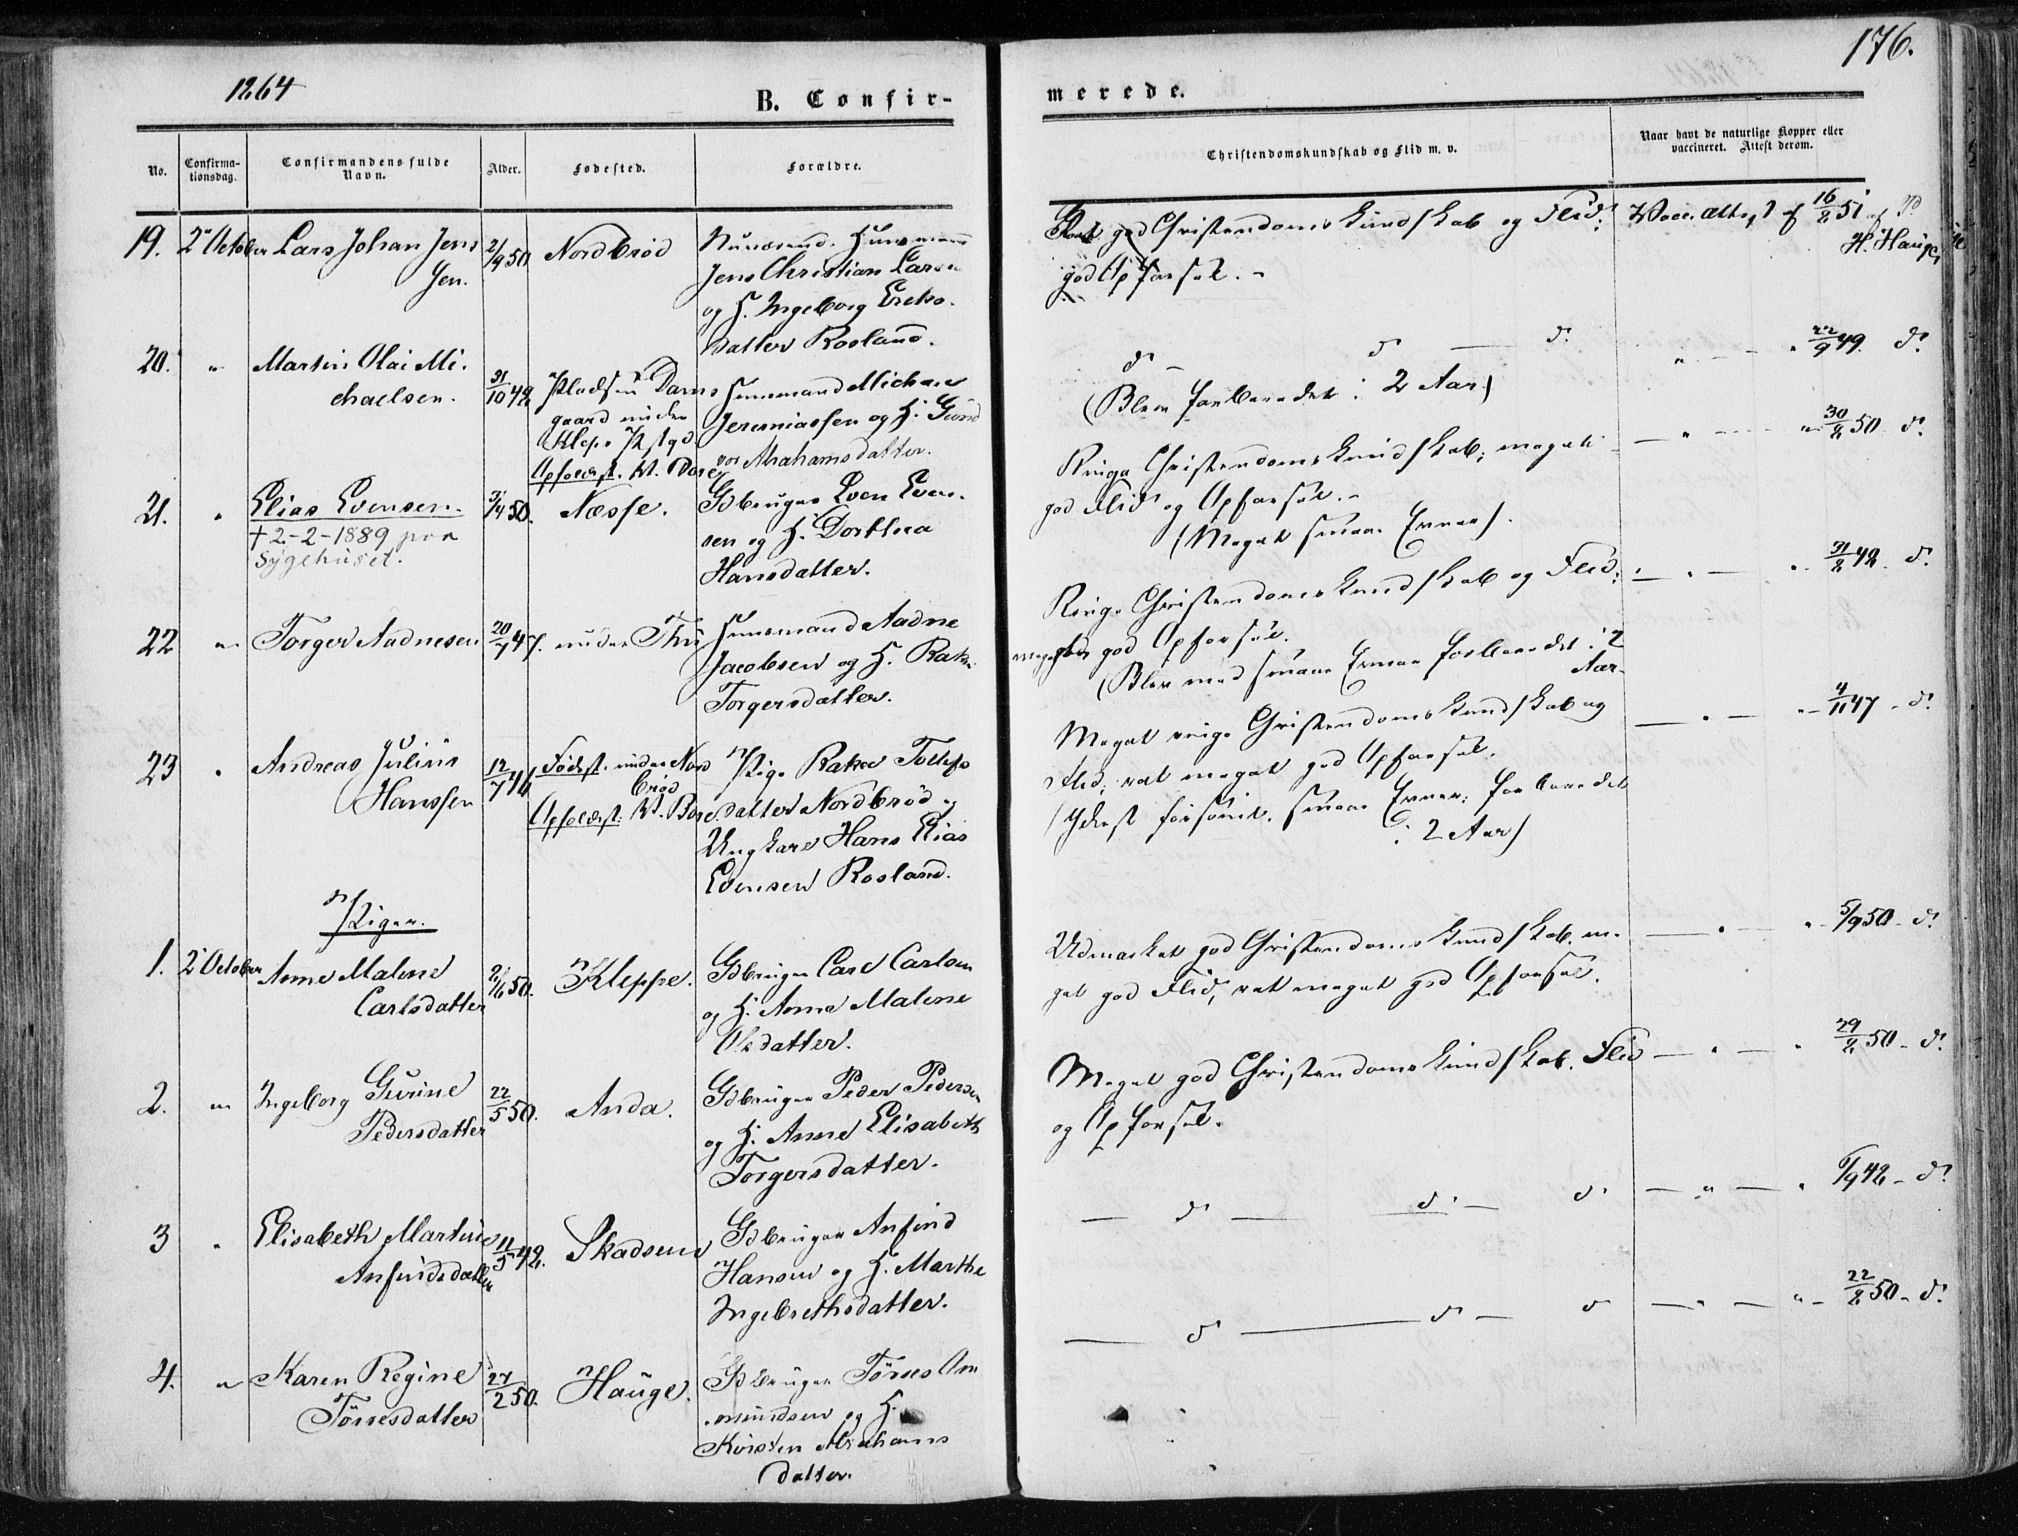 1864
176.
B. Confir-
merede.
No.
Confirma-
tionsdag.
Confirmandens fulde
Navn.
Alder.
Fødested.
Forældre.
Christendomskundskab og Flid m. v.
Naar havt de naturlige Kopper eller
vaccineret. Attest derom.
19. 2 October Lars Johan Jens
sen.
2/9 50
Nordbrød
Nuværend. Huusmand
Jens Christian Larsen
og H. Ingeborg Erichs-
datter Rosland.
god Christendomskundskab og Flid;
god Opførsel. -
Vacc. attest af 16/8 51 af
H. Hauge
20. " Martin Olai Mi-
chaelsen.
31/10 48
Pladsen
gaard under
Klep Pstgd.
Opfoldst. N. Bore
Huusmand Michael
Jeremiassen og H. Gund
vor Abrahamsdatter.
d° - d° - d°
(Blev forberedet i 2 Aar)
" - - " 22/9 49. d°
21. " Elias Evensen.
† 2-2-1889 paa
Sygehuset.
50.
Næsse.
Gdbruger Even Even-
sen og H. Dorthea
Hansdatter.
Ringe Christendomskundskab; meget
god Flid og Opførsel. -
(Meget smaae Evner).
- " - " 30/8 50 d°
22 " Torger Aadnesen
20/7 47.
under Thu
Huusmand Aadne
Jacobsen og H. Rakel
Torgersdatter.
Ringe Christendomskundskab og Flid;
meget god Opførsel.
(Blev med smaae Evner forberedet i 2
Aar.
- " - " 31/8 48 d°
23 " Andreas Julius
Hanssen
12/7 46
Fødest. under Nord
brød
Opfoldst. N. Bore
Pige Rakel Tollefs
datter Nordbrød og
Ungkarl Hans Elias
Evensen Rosland.
Meget ringe Christendomskundskab og
Flid; ret meget god Opførsel.
(Yderst forsømt. smaae Evner; forberedet
i 2 Aar)
- " - " 4/11 47 - d°
Piger.
1. 2 October
Anne Malene
Carlsdatter
50.
Kleppe.
Gdbruger Carl Carlsen
og H. Anne Malene
Olsdatter.
Udmærket god Christendomskundskab, me-
get god Flid, ret meget god Opførsel.
- " - " 5/9 50 - d°
2. " Ingeborg Gurine
Pedersdatter
22/5 50.
Anda.
Gdbruger Peder Pedersen
og H. Anne Elisabeth
Torgersdatter.
Meget god Christendomskundskab, Flid
og Opførsel.
- " - " 29/8 50 - d°
3 " Elisabeth Martine
Anfindsdatter
11/5 48.
Skadsem
Gdbruger Anfind
Hansen og H. Marthe
Ingebrethsdatter.
- d° - d° - d°
- " - " 48 - d°
4. " Karen Regine
Tørresdatter
27/2 50.
Hauge.
Gdbruger Tørres Om
mundsen og H.
Kirsten Abrahams
datter.
- d° - d° - d°
- " - " 22/8 50 - d°